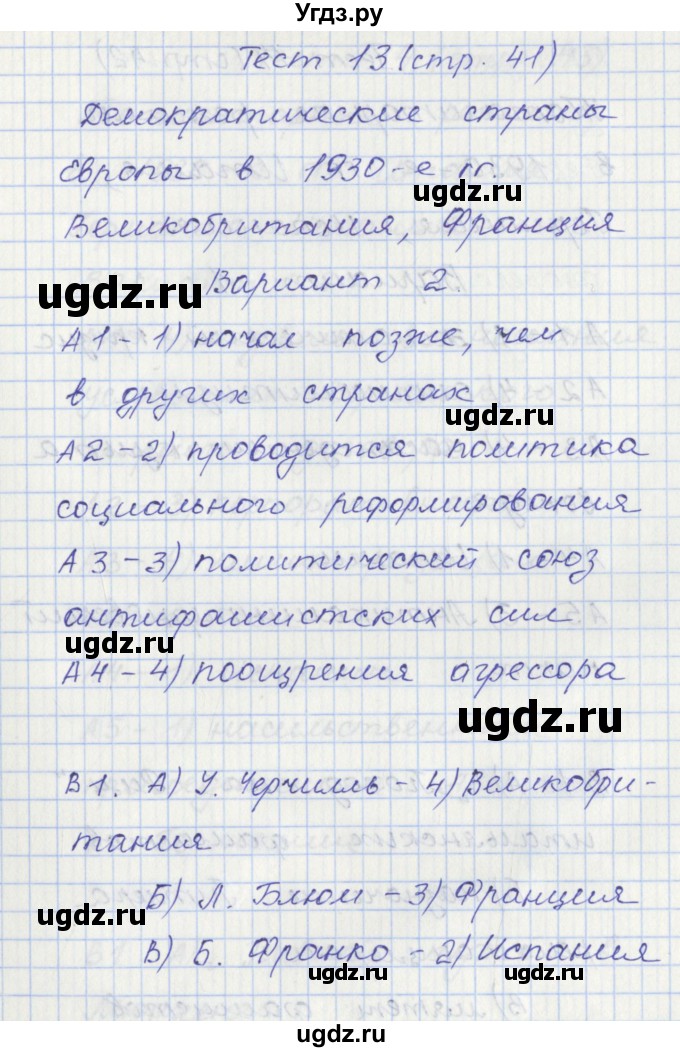 Угдз.ру
Тест 13 (стр. 41)
Демократические страны
Европы в 1930-е гг.
ugdz.ru
Великобритания, Франция
ugdz.ru
Вариант 2.
А1 - 1) начал позже, чем
в других странах
ugdz.ru
А2 - 2) проводится политика
социального реформирования
А3 - 3) политический союз
антифашистских сил
ugdz.ru
А4 - 4) поощрения агрессора
ugdz.ru
В1. А) У. Черчилль - 4) Великобри-
тания
Б) Л. Блюм - 3) Франция
ugdz.ru
В) Б. Франко - 2) Испания
ugdz.ru
ugdz.ru
ugdz.ru